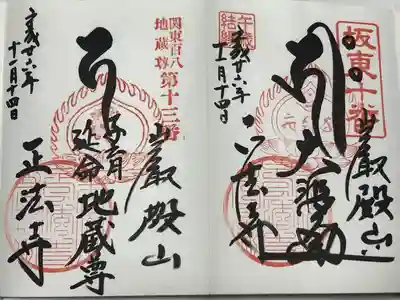 坂東十番
巌殿山
正法寺
午歳
結縁
平成廿六年
十一月十四日
関東百八
地蔵尊
第十三番
巌殿山
子育
延命
地蔵尊
正法寺
平成廿六年
十一月十四日